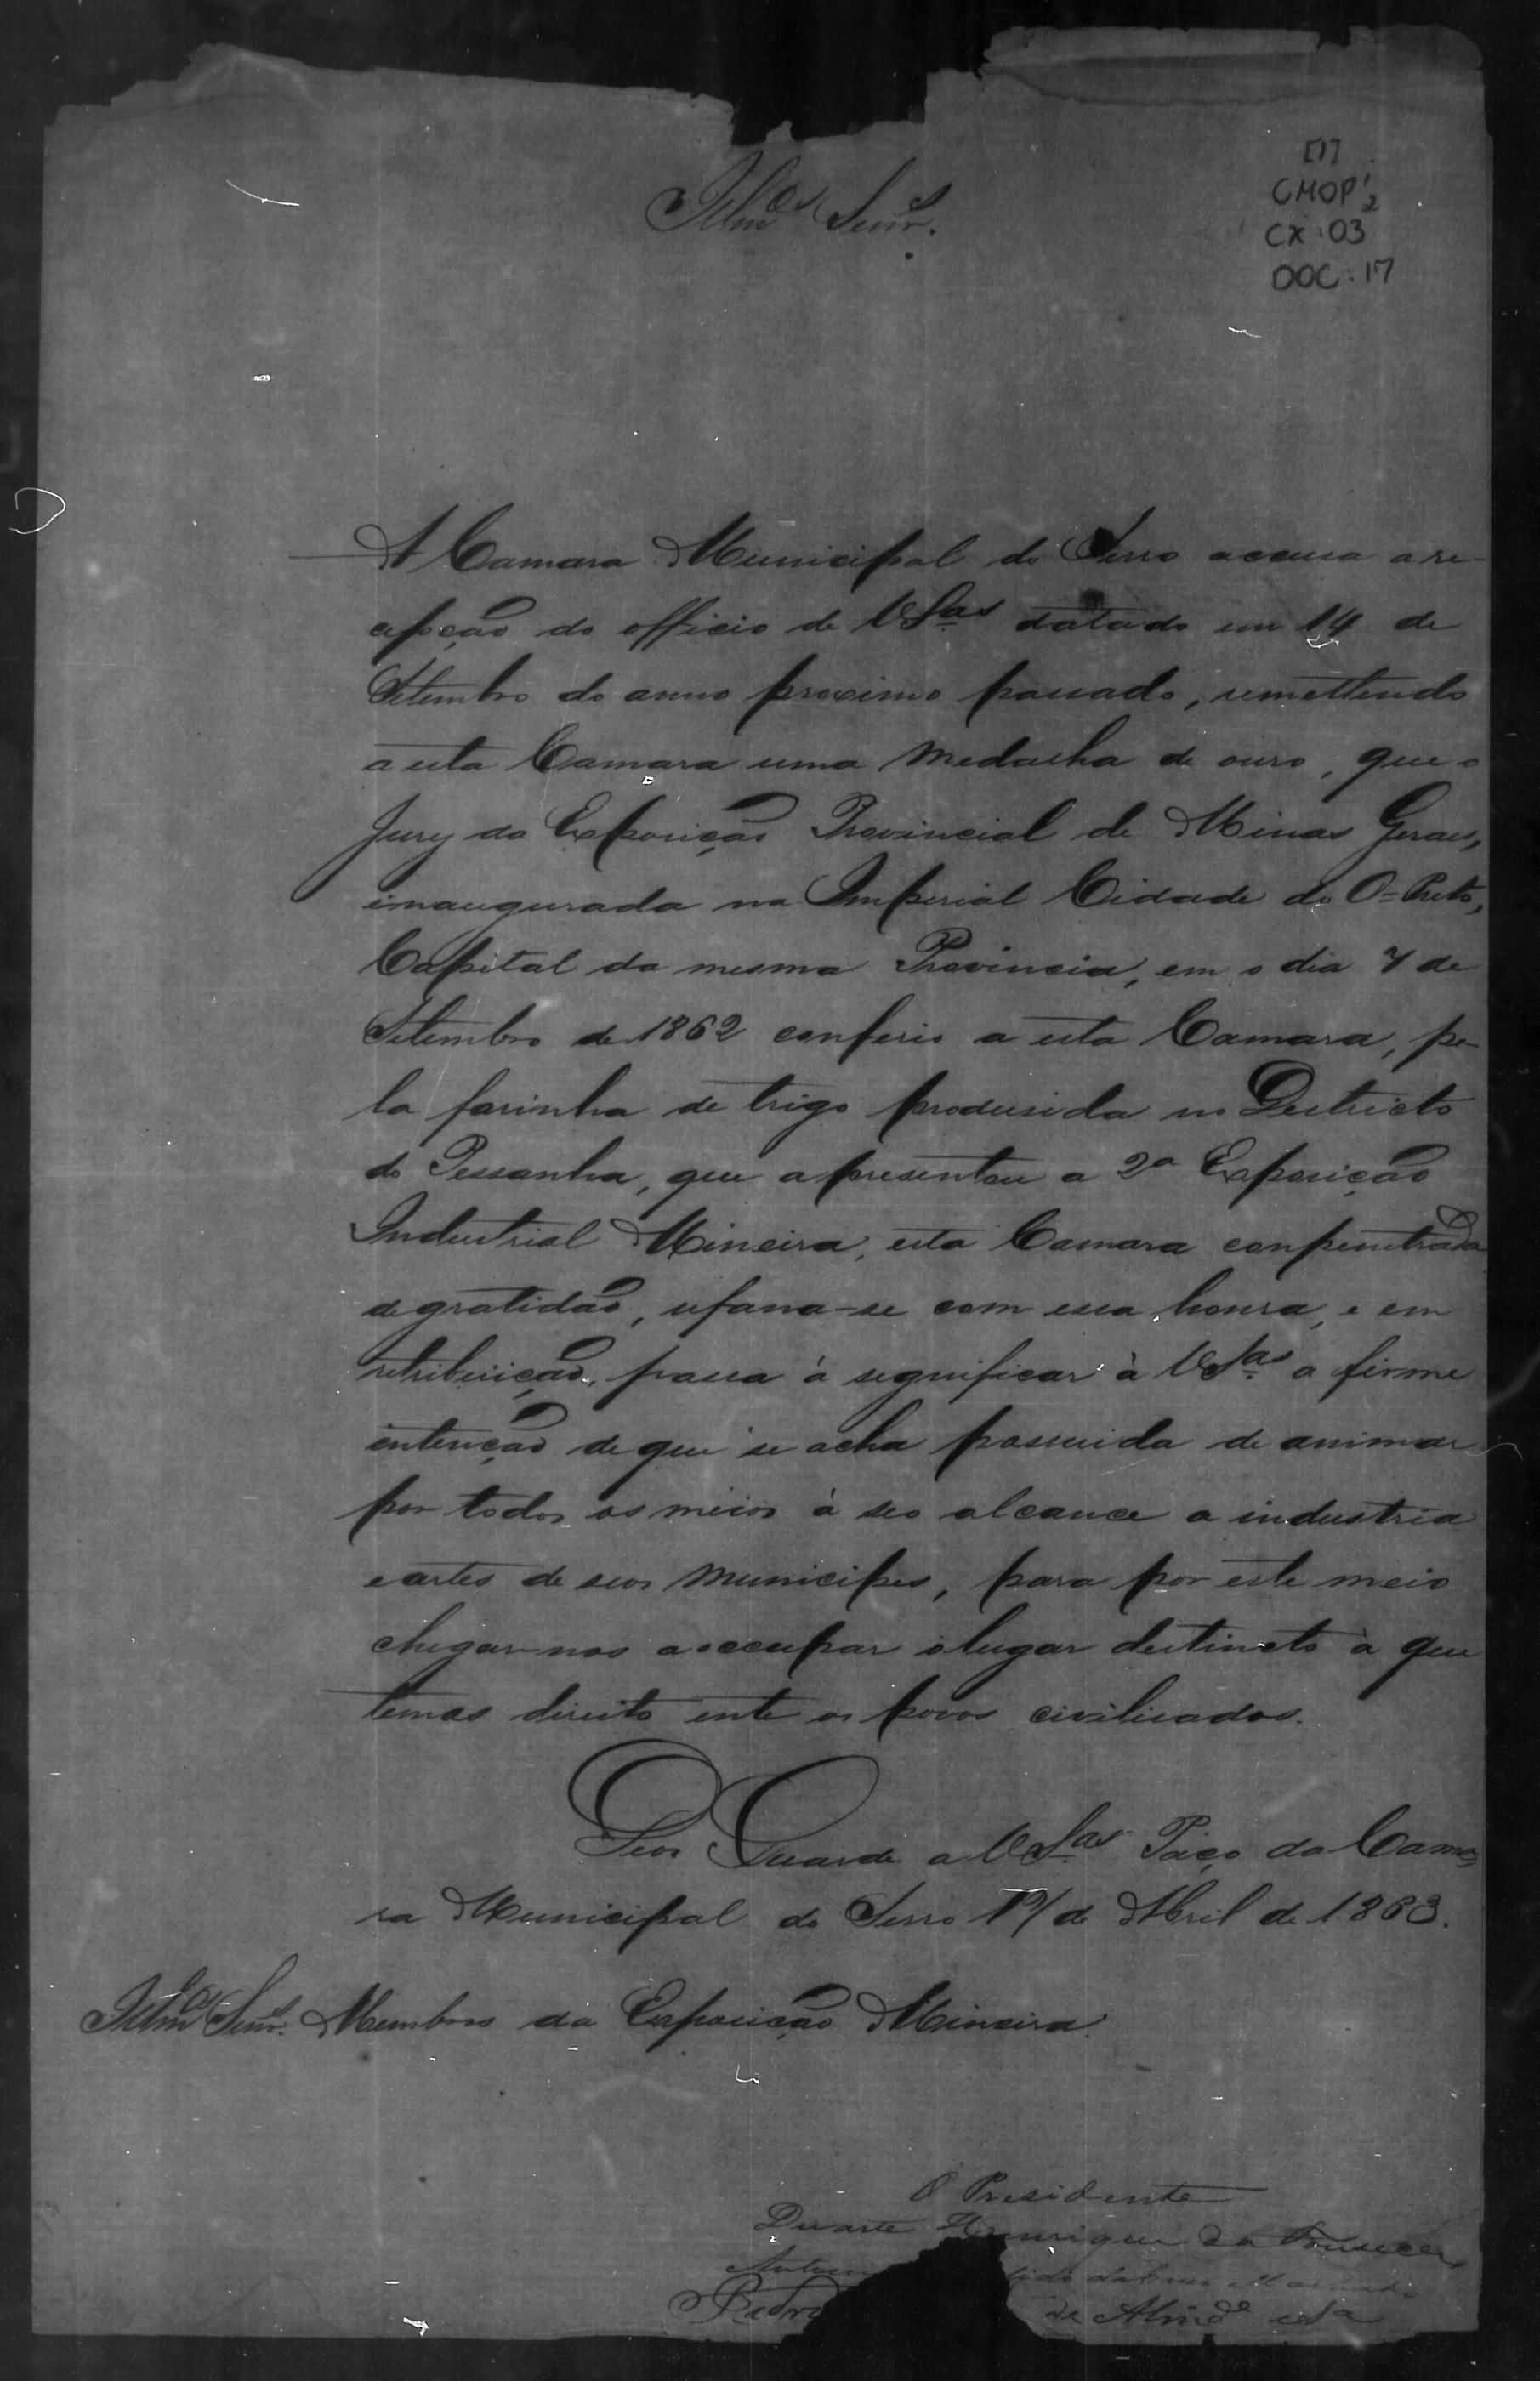 [1]
CMOP 2
CX : 03
DOC : 17
Illmos Senrs.
A Camara Municipal do Serro accusa a re-
cepção do officio de VSas datado em 14 de
Setembro do anno proximo passado, remettendo
a esta Camara uma medalha de ouro, que o
Jury da Exposição Provincial de Minas Geraes,
inaugurada na Imperial Cidade do O=Preto,
Capital da mesma Provincia, em o dia 7 de
Setembro de 1862 conferio a esta Camara, pe-
la farinha de trigo produsida no Destricto
do Pessanha, que apresentou a 2a Exposição
Industrial Mineira, esta Camara conpenetrada
de gratidão, ufana-se com essa honra, e em
retribuição, passa á significar à VSas a firme
intenção de que se acha possuida de animar
por todos os meios á seo alcance a industria
e artes de seos municipes, para por este meio
chegar-mos a occupar o lugar destincto à que
temos direito ente os povos civilisados.
Deos Guarde a VSas Paço da Cama-
ra Municipal do Serro de Abril de 1863.
Illmos Senrs. Membros da Exposição Mineira.
O Presidente
Duarte Henrique da Fonseca
Pedro de Almda